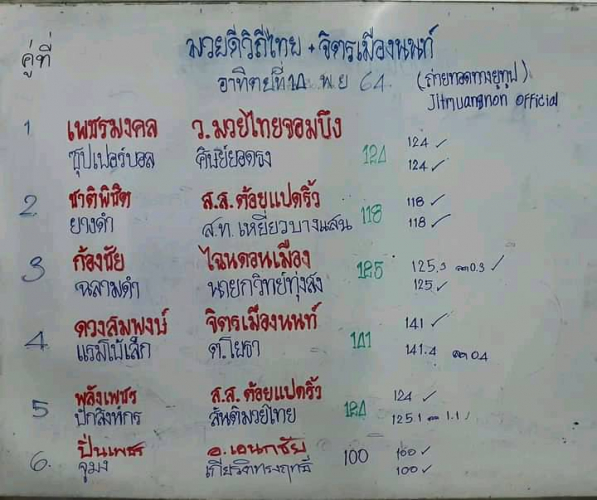 คู่ที่ มวยดีวิถีไทย + จิตรเมืองนนท์
อาทิตย์ที่ 14 พ.ย 64 (ถ่ายทอดทางยูทูป)
Jitmuangnon Official
1 เพชรมงคล ว.มวยไทยจอมบึง 124 ✓
ซุปเปอร์บอล ศิษย์ยอดธง 124 124 ✓
2 ชาติพิชิต ส.ส.ต้อยแปดริ้ว 118 ✓
ยางดำ ส.ท.เหยี่ยวบางแสน 118 118 ✓
3 ก้องชัย ไฉนดอนเมือง 125 125.3 0.3 ✓
ฉลามดำ นายกวิทย์ทุ่งสง 125 ✓
4 ดวงสมพงษ์ จิตรเมืองนนท์ 141 ✓
แรมโบ้เล็ก ต.โยธา 141 141.4 0.4
5 พลังเพชร ส.ส.ต้อยแปดริ้ว 124 ✓
ปักสิงห์กร สันติมวยไทย 124 125.1 1.1
6. ปิ่นเพชร อ.เอนกชัย 100 100 ✓
จูมง เกียรติทรงฤทธิ์ 100 ✓